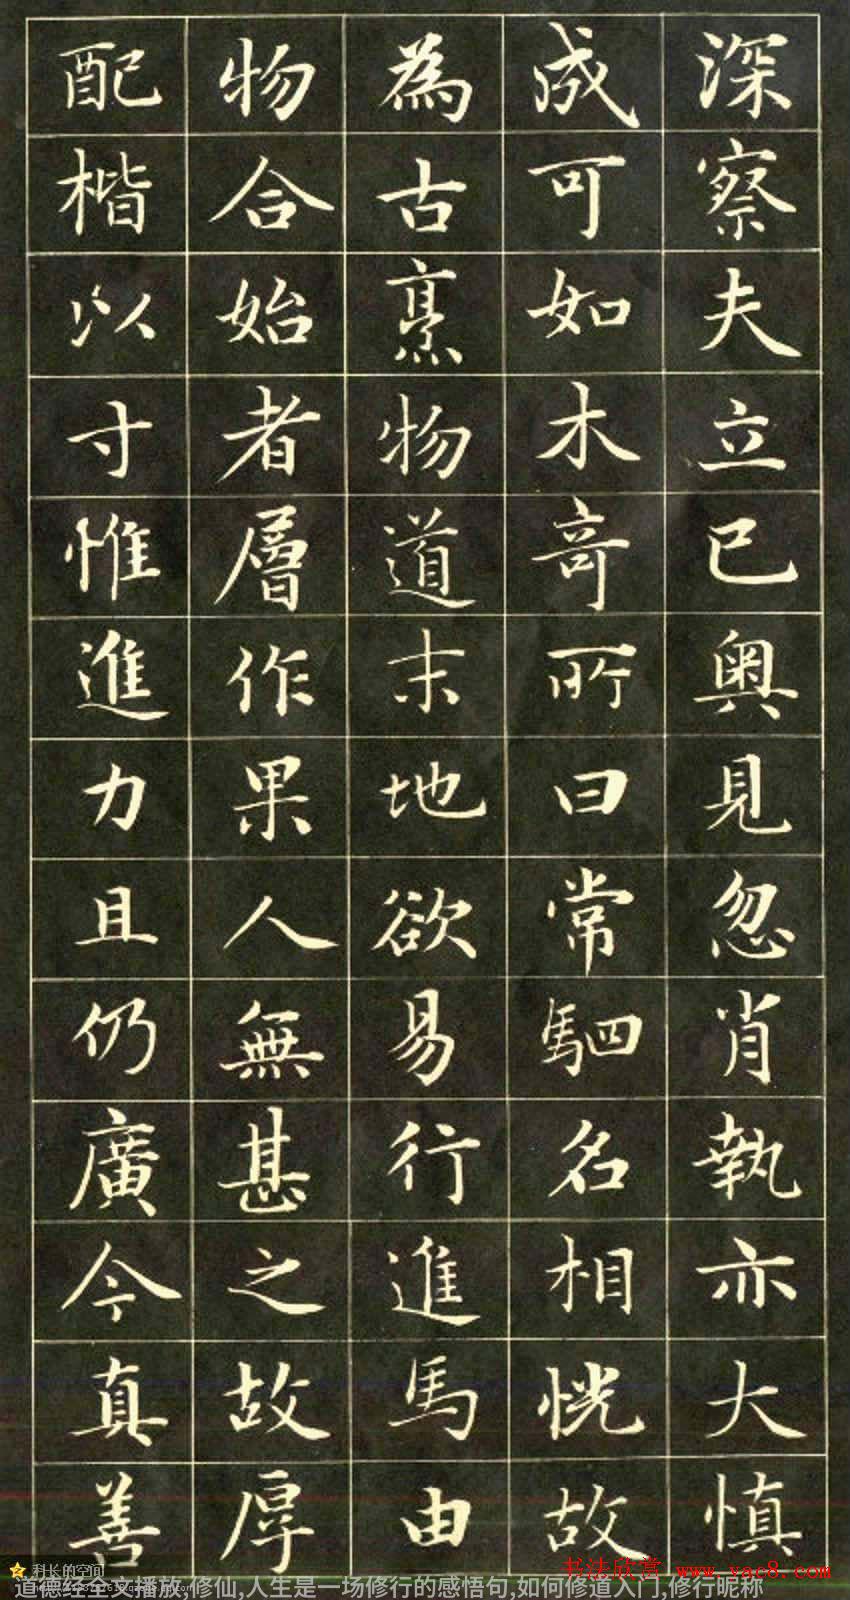 深察夫立已奥見忽肖執亦大慎
成可如木奇所曰常駟名相恍故
為古烹物道末地欲易行進馬由
物合始者層作果人無甚之故厚
配楷以寸惟進力且仍廣今真善
书法欣赏 www.yac8.com
科长的空间
道德经全文播放,修仙,人生是一场修行的感悟句,如何修道入门,修行昵称